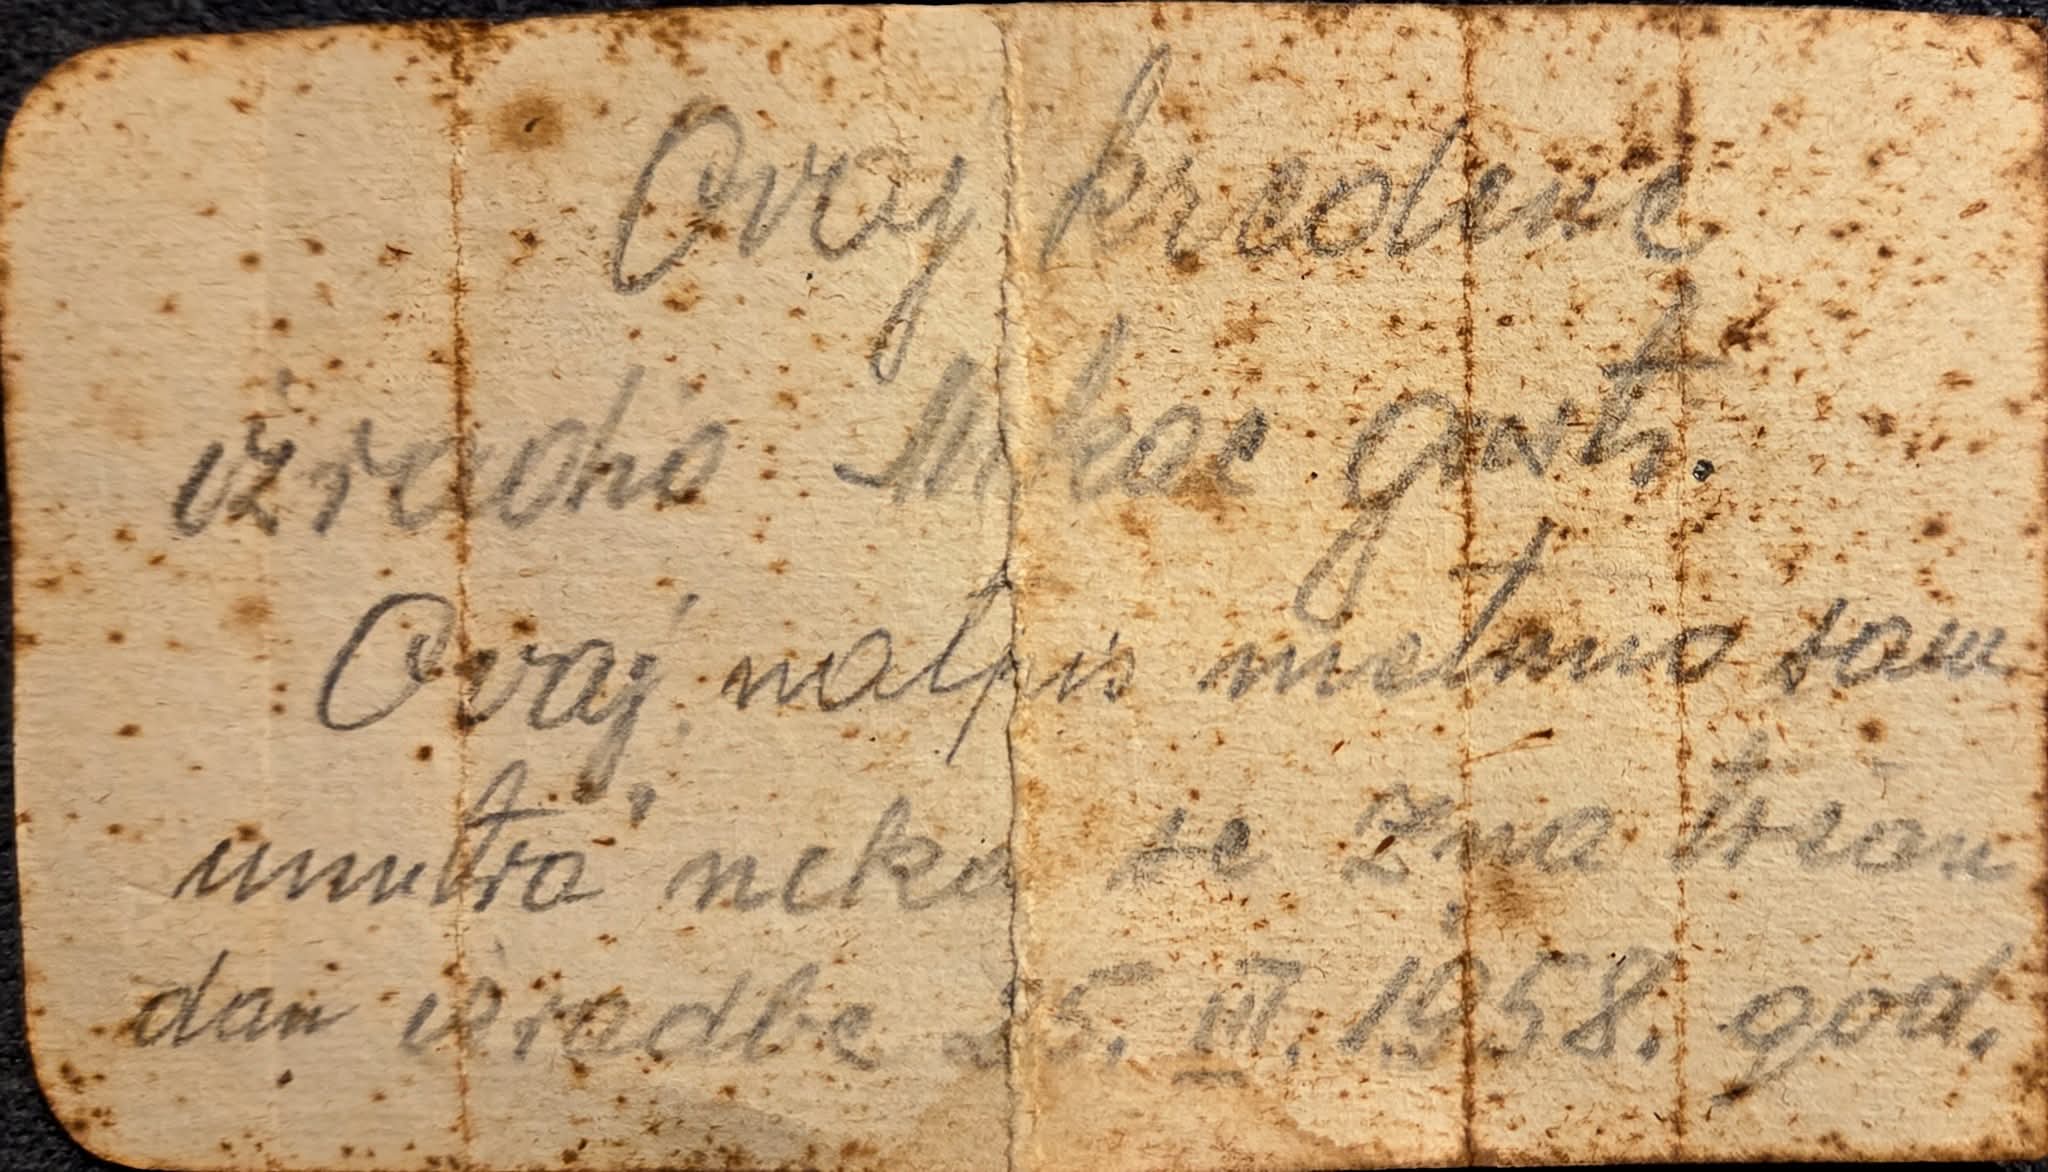 Ovaj kredenc
izradio Mikac gusti.
Ovaj natpis metnuo sam
unutra neka se zna
dan izradbe 25. III. 1958. god.